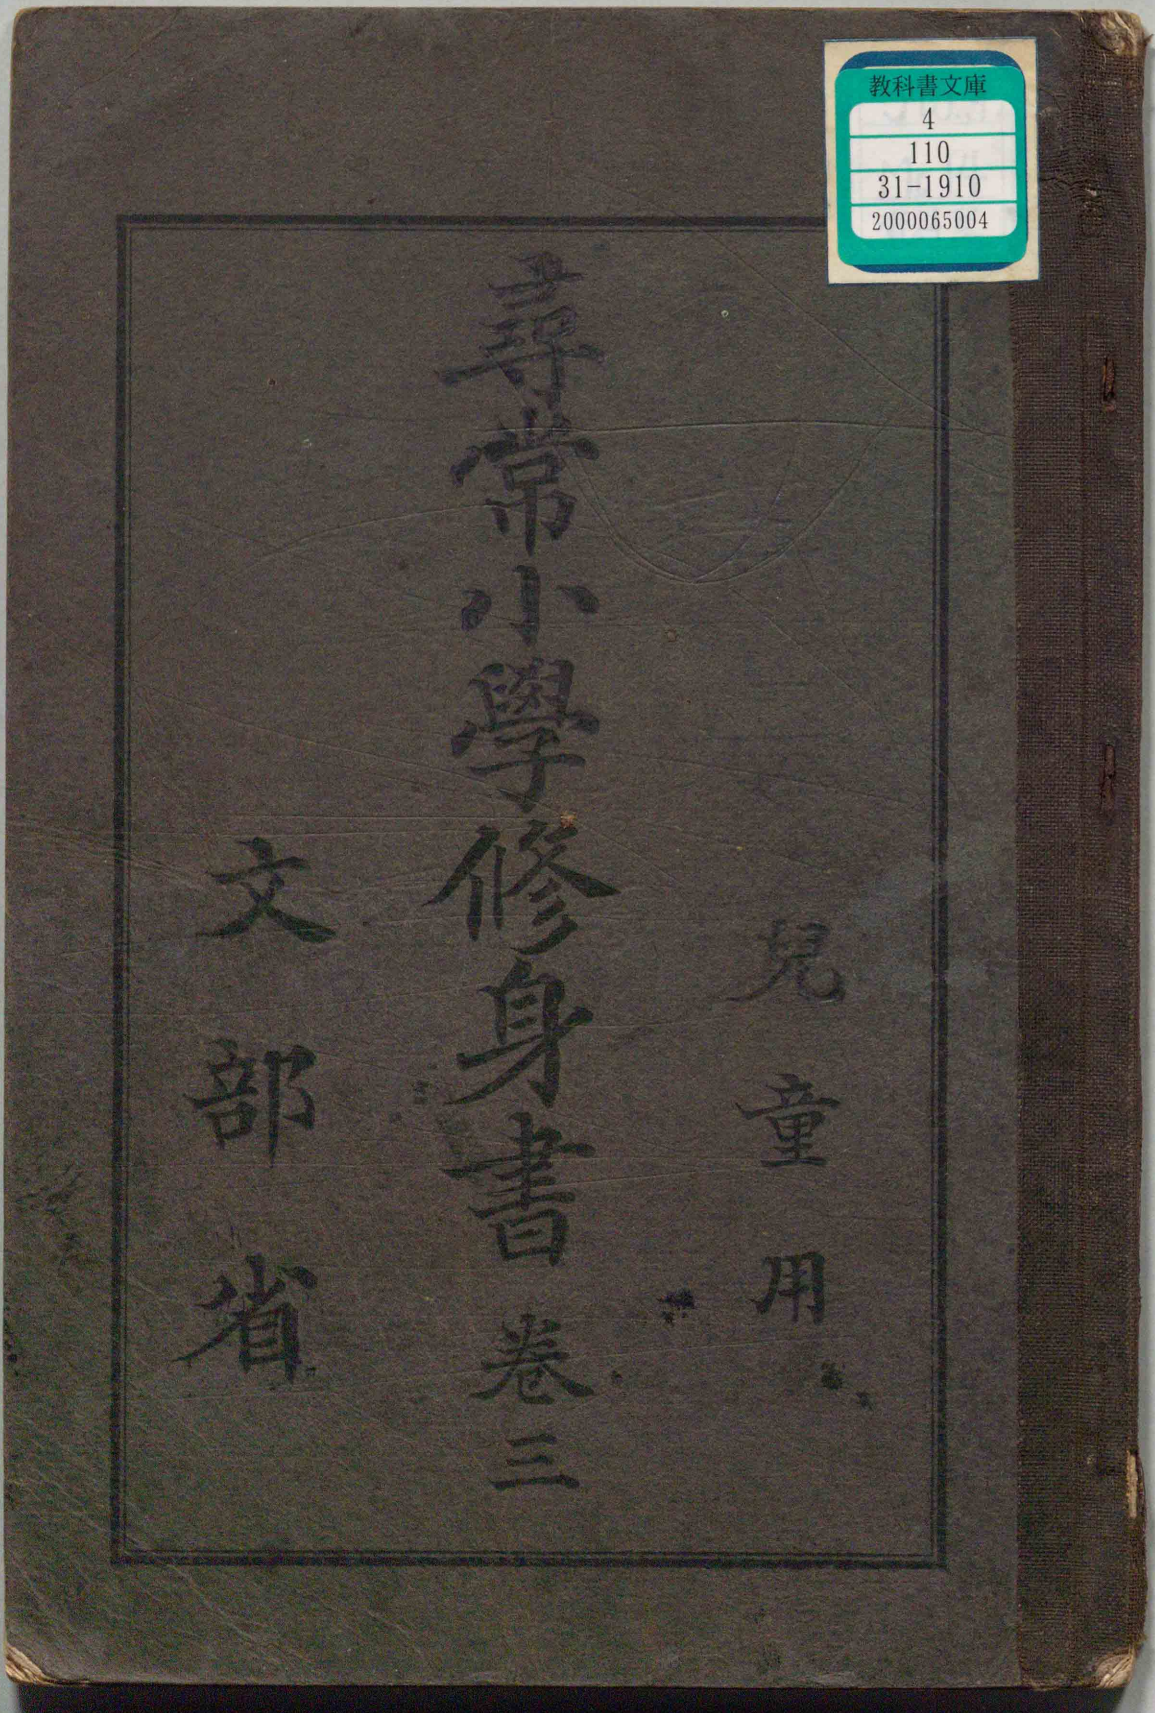 教科書文庫
4
110
31-1910
2000065004
兒童用
尋常小學修身書 卷三
文部省